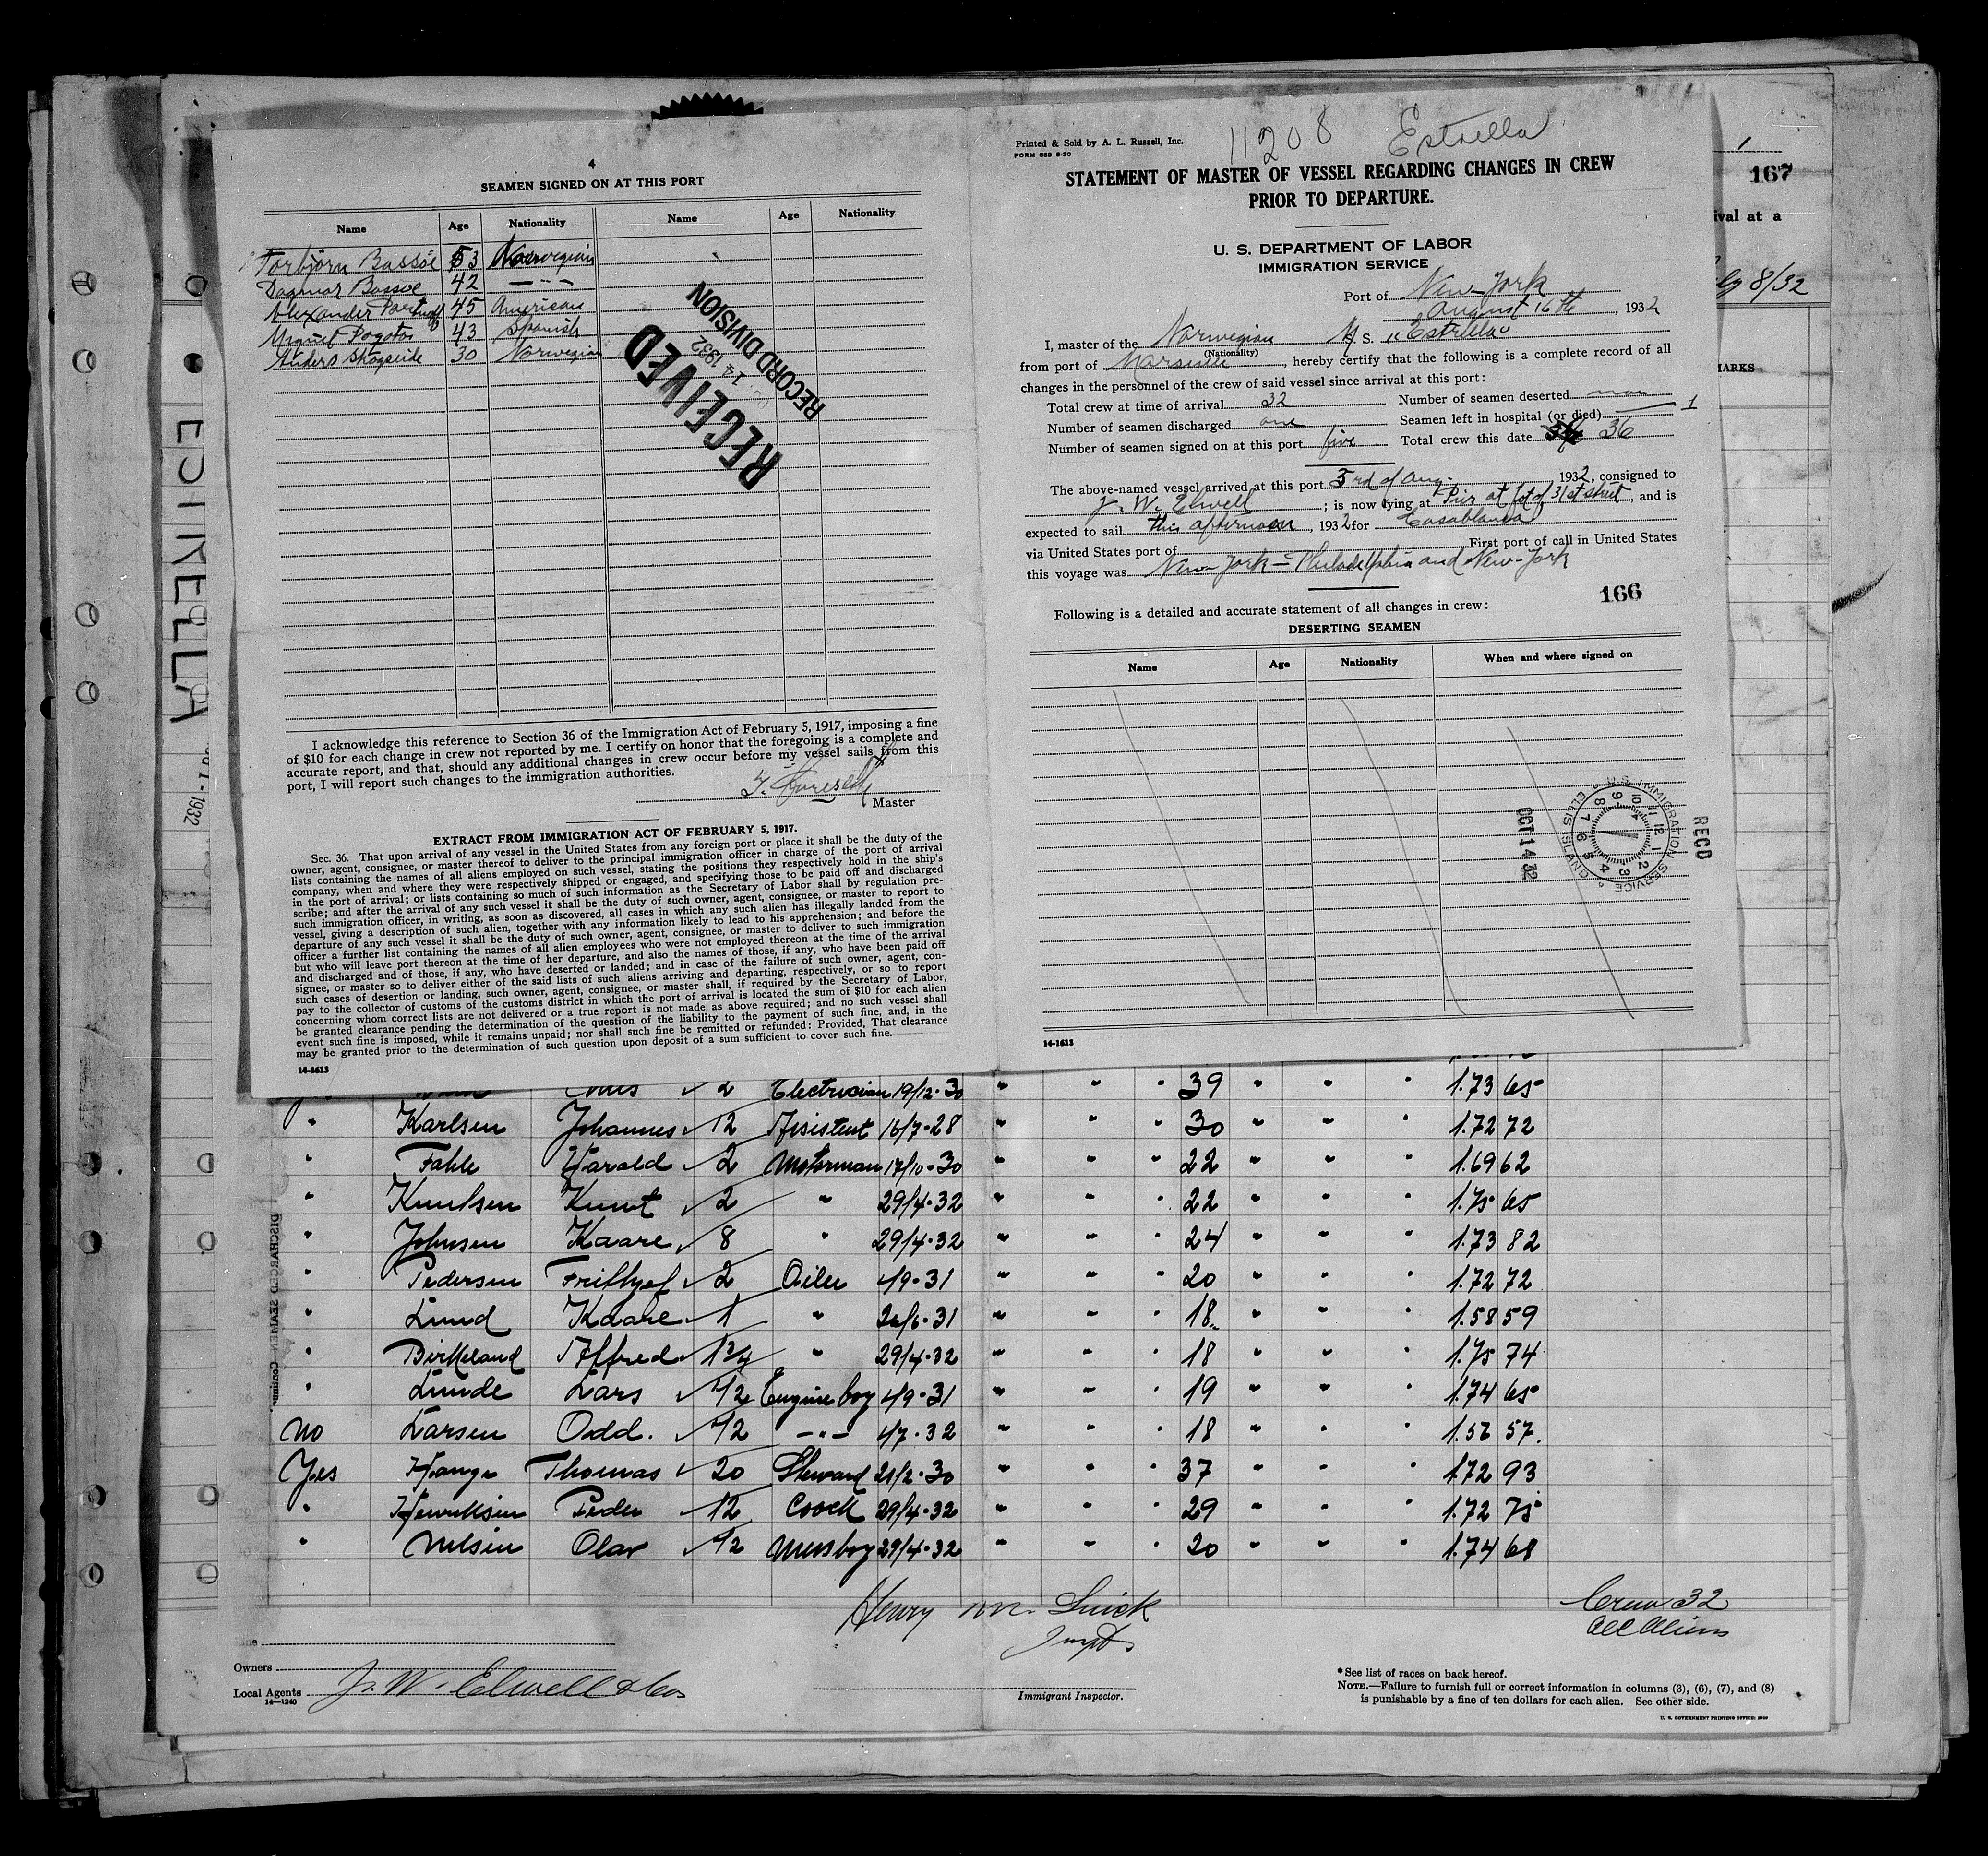 4
SEAMEN SIGNED ON AT THIS PORT
Name Age Nationality Name Age Nationality
Torbjörn Bassöe 53 Norwegian
Dagmar Bassoe 42 —"—
Alexander 45 American
Miguel 43 Spanish
30 Norwegian
RECEIVED
14 1932
RECORD DIVISION
I acknowledge this reference to Section 36 of the Immigration Act of February 5, 1917, imposing a fine
of $10 for each change in crew not reported by me. I certify on honor that the foregoing is a complete and
accurate report, and that, should any additional changes in crew occur before my vessel sails from this
port, I will report such changes to the immigration authorities.
Master
EXTRACT FROM IMMIGRATION ACT OF FEBRUARY 5, 1917.
Sec. 36. That upon arrival of any vessel in the United States from any foreign port or place it shall be the duty of the
owner, agent, consignee, or master thereof to deliver to the principal immigration officer in charge of the port of arrival
lists containing the names of all aliens employed on such vessel, stating the positions they respectively hold in the ship's
company, when and where they were respectively shipped or engaged, and specifying those to be paid off and discharged
in the port of arrival; or lists containing so much of such information as the Secretary of Labor shall by regulation pre-
scribe; and after the arrival of any such vessel it shall be the duty of such owner, agent, consignee, or master to report to
such immigration officer, in writing, as soon as discovered, all cases in which any such alien has illegally landed from the
vessel, giving a description of such alien, together with any information likely to lead to his apprehension; and before the
departure of any such vessel it shall be the duty of such owner, agent, consignee, or master to deliver to such immigration
officer a further list containing the names of all alien employees who were not employed thereon at the time of the arrival
but who will leave port thereon at the time of her departure, and also the names of those, if any, who have been paid off
and discharged and of those, if any, who have deserted or landed; and in case of the failure of such owner, agent, con-
signee, or master so to deliver either of the said lists of such aliens arriving and departing, respectively, or so to report
such cases of desertion or landing, such owner, agent, consignee, or master shall, if required by the Secretary of Labor,
pay to the collector of customs of the customs district in which the port of arrival is located the sum of $10 for each alien
concerning whom correct lists are not delivered or a true report is not made as above required; and no such vessel shall
be granted clearance pending the determination of the question of the liability to the payment of such fine, and, in the
event such fine is imposed, while it remains unpaid; nor shall such fine be remitted or refunded: Provided, That clearance
may be granted prior to the determination of such question upon deposit of a sum sufficient to cover such fine.
14-1613
Printed & Sold by A. L. Russell, Inc.
FORM 689 8-30
11208 Estrella
STATEMENT OF MASTER OF VESSEL REGARDING CHANGES IN CREW
PRIOR TO DEPARTURE.
U. S. DEPARTMENT OF LABOR
IMMIGRATION SERVICE
Port of New-York
August 16th, 1932
I, master of the Norwegian M. S. "Estrella"
(Nationality)
from port of Marseille, hereby certify that the following is a complete record of all
changes in the personnel of the crew of said vessel since arrival at this port:
Total crew at time of arrival 32 Number of seamen deserted non
Number of seamen discharged one Seamen left in hospital (or died) — 1
Number of seamen signed on at this port five Total crew this date 36
The above-named vessel arrived at this port 3rd of Aug. 1932, consigned to
J. W. Elwell; is now lying at Pier at fot of 31st street, and is
expected to sail this afternoon, 1932 for Casablanca
via United States port of First port of call in United States
this voyage was New-York - Philadelphia and New-York
166
Following is a detailed and accurate statement of all changes in crew:
DESERTING SEAMEN
Name Age Nationality When and where signed on
U.S. IMMIGRATION SERVICE ELLIS ISLAND
RECD
OCT 14 32
14-1613
167
ival at a
8/32
MARKS
ESTRELLA
1932
DISCHARGED SEAMEN—Continued
2 Electrician 19/12-30 " " " 39 " " " 1.73 65
" Karlsen Johannes 12 Assistent 16/7-28 " " " 30 " " " 1.72 72
" Fahle Harald 2 Motorman 17/10-30 " " " 22 " " " 1.69 62
" Knutsen Knut 2 " 29/4-32 " " " 22 " " " 1.75 65
" Johnsen Kaare 8 " 29/4-32 " " " 24 " " " 1.73 82
" Pedersen Frithjof 2 Oiler 4/9-31 " " " 20 " " " 1.72 72
" Lund Kaare 1 " 26/6-31 " " " 18 " " " 1.58 59
" Birkeland Alfred 1 3/4 " 29/4-32 " " " 18 " " " 1.75 74
" Lunde Lars 1/2 Engine boy 4/9-31 " " " 19 " " " 1.74 65
No Larsen Odd. 1/2 —"— 4/7-32 " " " 18 " " " 1.56 57.
Yes Hauge Thomas 20 Steward 21/2-30 " " " 37 " " " 1.72 93
" Henriksen Peder 12 Coock 29/4-32 " " " 29 " " " 1.72 75
" Nilsen Olav 1/2 Messboy 29/4-32 " " " 20 " " " 1.74 68
Crew 32
All Aliens
Henry
Inspt
Owners
Local Agents J. W. Elwell & Co
14—1240
Immigrant Inspector.
*See list of races on back hereof.
NOTE.—Failure to furnish full or correct information in columns (3), (6), (7), and (8)
is punishable by a fine of ten dollars for each alien. See other side.
U. S. GOVERNMENT PRINTING OFFICE: 1929